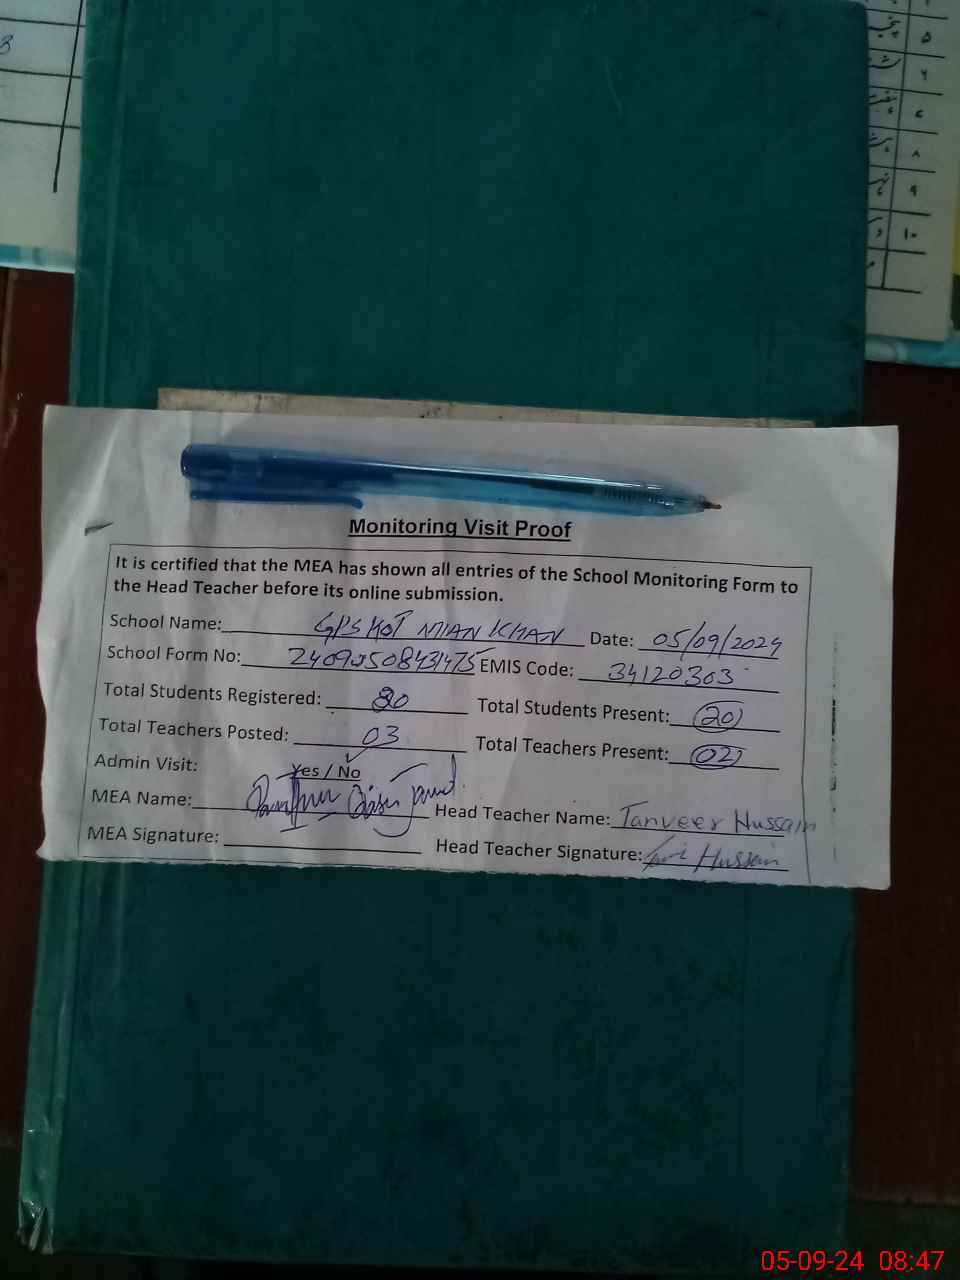 3
۵
۶
۸
۹
۱۰
Monitoring Visit Proof
It is certified that the MEA has shown all entries of the School Monitoring Form to
the Head Teacher before its online submission.
School Name: GPS KOT MIAN KHAN Date: 05/09/2024
School Form No: EMIS Code: 34120303
Total Students Registered: Total Students Present: 20
Total Teachers Posted: 03 Total Teachers Present: 02
Admin Visit: Yes / No
MEA Name: Head Teacher Name: Tanveer Hussain
MEA Signature: Head Teacher Signature: Hussain
05-09-24 08:47